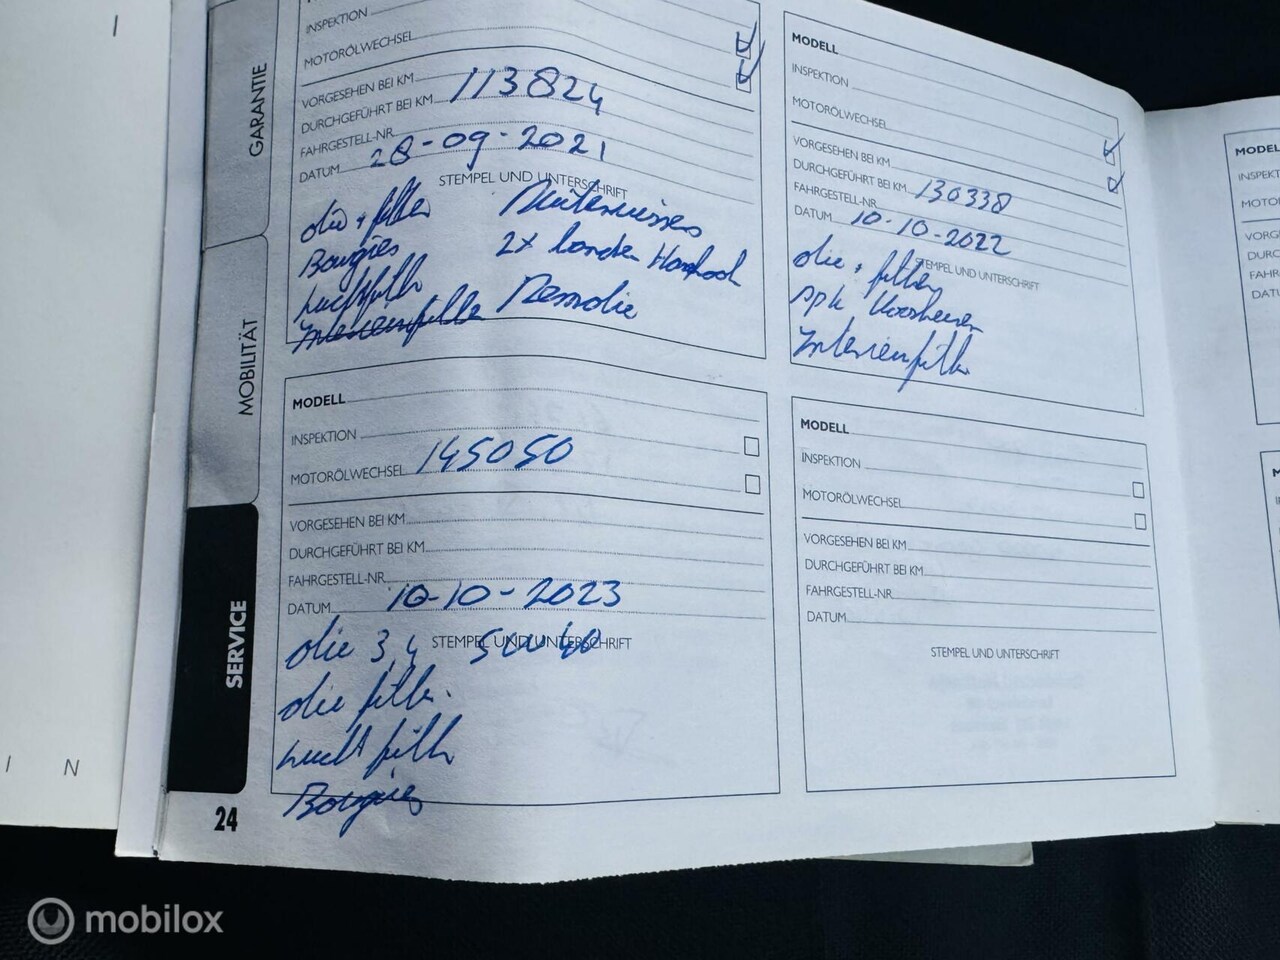 GARANTIE
MOBILITÄT
SERVICE
24
I N
INSPEKTION
MOTORÖLWECHSEL
VORGESEHEN BEI KM
DURCHGEFÜHRT BEI KM 113824
FAHRGESTELL-NR.
DATUM 28-09-2021
STEMPEL UND UNTERSCHRIFT
olie + filter Ruitenwissers
Bougies 2x banden Hankook
Luchtfilter Remolie
Interieurfilter
MODELL
INSPEKTION
MOTORÖLWECHSEL
VORGESEHEN BEI KM
DURCHGEFÜHRT BEI KM 130338
FAHRGESTELL-NR.
DATUM 10-10-2022
STEMPEL UND UNTERSCHRIFT
olie + filter
apk
Interieurfilter
MODELL
INSPEKTION
MOTORÖLWECHSEL 145050
VORGESEHEN BEI KM
DURCHGEFÜHRT BEI KM
FAHRGESTELL-NR.
DATUM 10-10-2023
STEMPEL UND UNTERSCHRIFT
olie 3,4 5W40
olie filter
Lucht filter
Bougies
MODELL
INSPEKTION
MOTORÖLWECHSEL
VORGESEHEN BEI KM
DURCHGEFÜHRT BEI KM
FAHRGESTELL-NR.
DATUM
STEMPEL UND UNTERSCHRIFT
MODEL
INSPEKT
MOTO
VORG
DURC
FAHR
DATU
mobilox